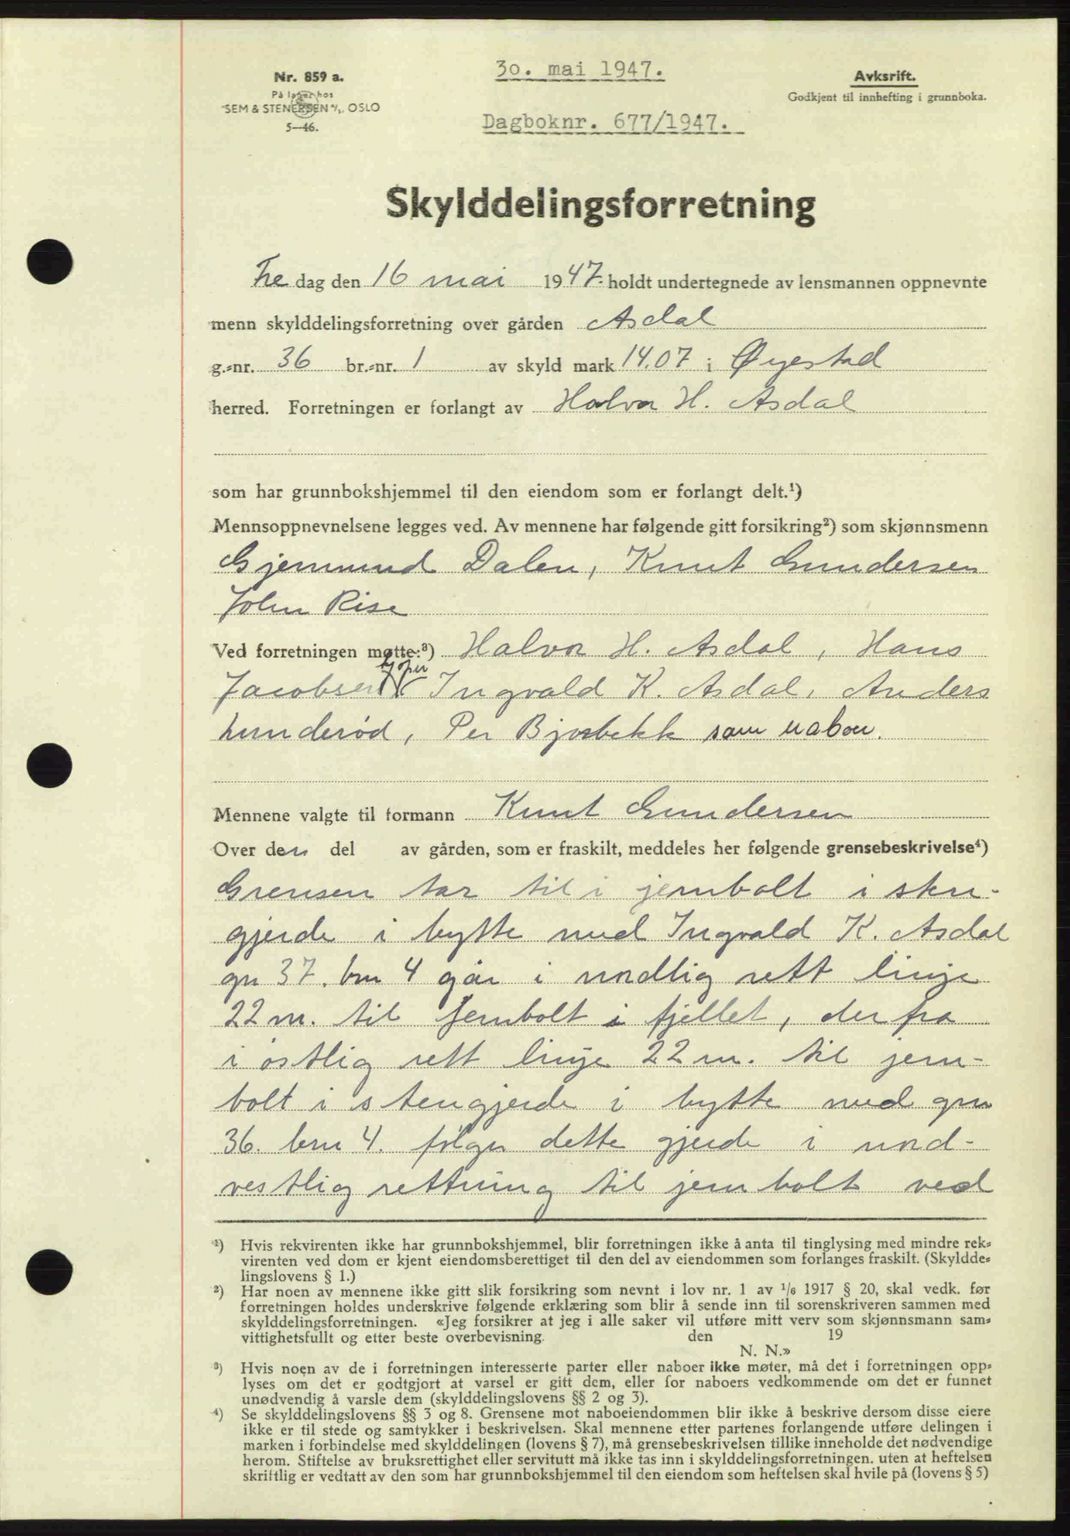 Nr. 859 a.
På lager hos
SEM & STENERSEN A/S. OSLO
5-46.
30. mai 1947.
Dagboknr. 677/1947.
Avksrift.
Godkjent til innhefting i grunnboka.
Skylddelingsforretning
Fre dag den 16 mai 1947. holdt undertegnede av lensmannen oppnevnte
menn skylddelingsforretning over gården Asdal
g.-nr. 36 br.-nr. 1 av skyld mark 14.07 i Øyestad
herred. Forretningen er forlangt av Halvor H. Asdal
som har grunnbokshjemmel til den eiendom som er forlangt delt.¹)
Mennsoppnevnelsene legges ved. Av mennene har følgende gitt forsikring²) som skjønnsmenn
Gjermund Dalen, Knut Gundersen
John Rise
Ved forretningen møtte:³) Halvor H. Asdal, Hans
kjøper
Jacobsen Ingvald K. Asdal, Anders
Lunderød, Per Bjorbekk som naboer.
Mennene valgte til formann Knut Gundersen
Over den del av gården, som er fraskilt, meddeles her følgende grensebeskrivelse⁴)
Grensen tar til i jernbolt i sten-
gjerde i bytte med Ingvald K. Asdal
gn 37. bn 4 går i nordlig rett linje
22 m. til jernbolt i fjellet, derfra
i østlig rett linje 22 m. til jern-
bolt i stengjerde i bytte med gn
36. bn 4. følger dette gjerde i nord-
vestlig rettning til jernbolt ved
¹) Hvis rekvirenten ikke har grunnbokshjemmel, blir forretningen ikke å anta til tinglysing med mindre rek-
virenten ved dom er kjent eiendomsberettiget til den del av eiendommen som forlanges fraskilt. (Skyldde-
lingslovens § 1.)
²) Har noen av mennene ikke gitt slik forsikring som nevnt i lov nr. 1 av 1/6 1917 § 20, skal vedk. før
forretningen holdes underskrive følgende erklæring som blir å sende inn til sorenskriveren sammen med
skylddelingsforretningen. «Jeg forsikrer at jeg i alle saker vil utføre mitt verv som skjønnsmann sam-
vittighetsfullt og etter beste overbevisning. den 19
N. N.»
³) Hvis noen av de i forretningen interesserte parter eller naboer ikke møter, må det i forretningen opp-
lyses om det er godtgjort at varsel er gitt dem, eller for naboers vedkommende om det er funnet
unødvendig å varsle dem (skylddelingslovens §§ 2 og 3).
⁴) Se skylddelingslovens §§ 3 og 8. Grensene mot naboeiendommen blir ikke å beskrive dersom disse eiere
ikke er til stede og samtykker i beskrivelsen. Skal mennene etter partenes forlangende utføre delingen i
marken i forbindelse med skylddelingen (lovens § 7), må grensebeskrivelsen tillike inneholde det nødvendige
herom. Stiftelse av bruksrettighet eller servitutt må ikke tas inn i skylddelingsforretningen. uten at heftelsen
skriftlig er vedtatt av den som har grunnbokshjemmel til den eiendom som heftelsen skal hvile på (lovens § 5)